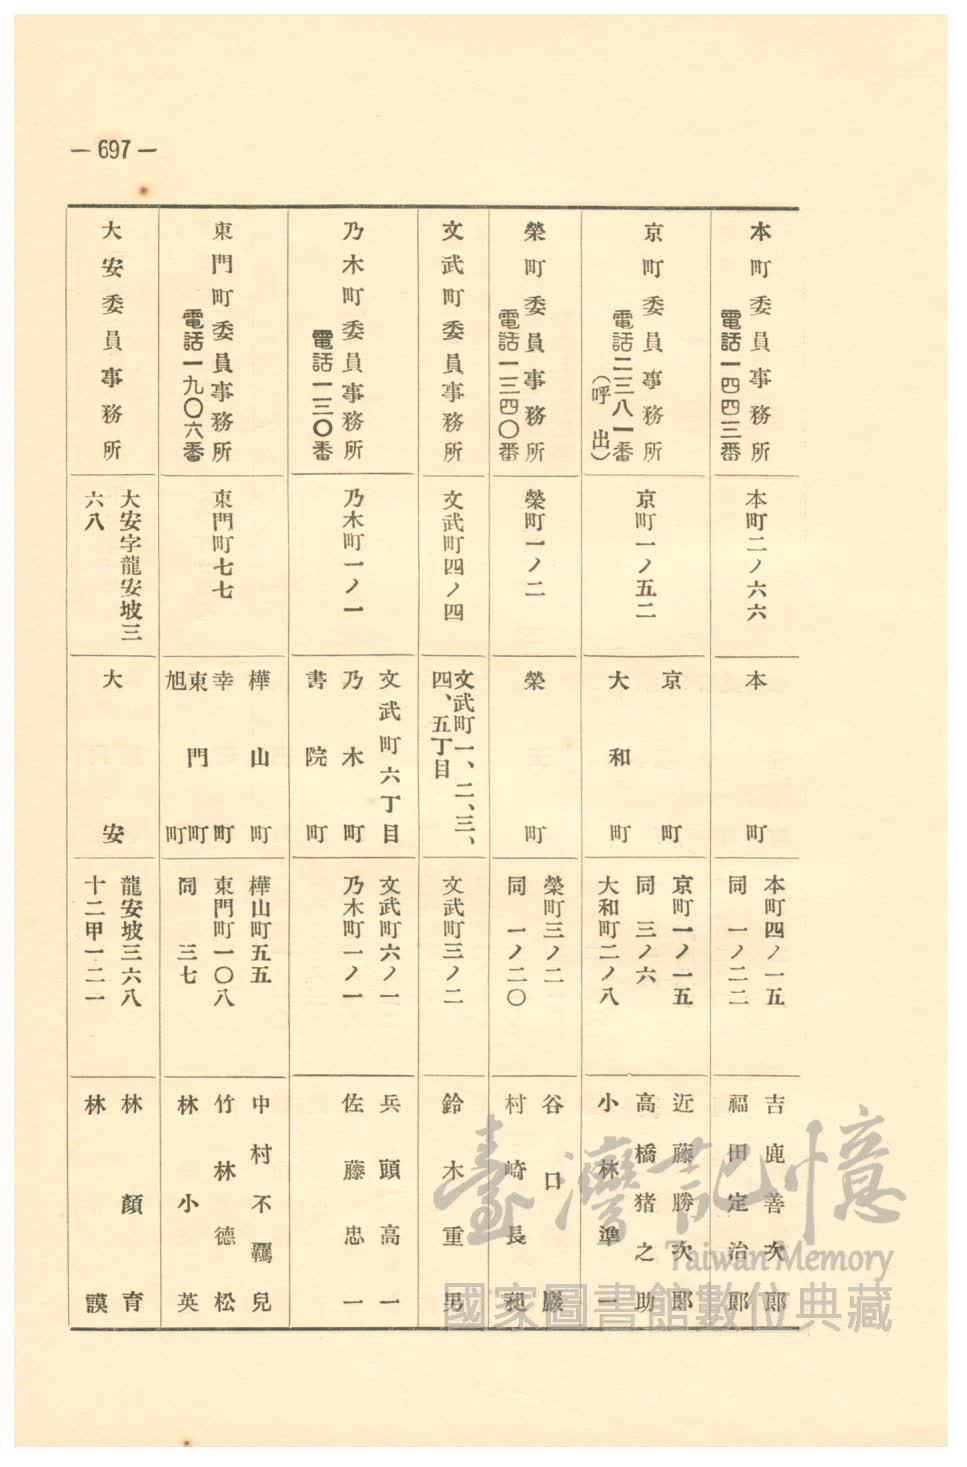 — 697 —
本町委員事務所
電話一四四三番
本町二ノ六六
本町
本町四ノ一五
同 一ノ二二
吉鹿善次郎
福田定治郎
京町委員事務所
電話二三八一番
（呼出）
京町一ノ五二
京町
大和町
京町一ノ一五
同 三ノ六
大和町二ノ八
近藤勝次郎
高橋猪之助
小林準一
榮町委員事務所
電話一三四〇番
榮町一ノ二
榮町
榮町三ノ二
同 一ノ二〇
谷口巖
村崎長昶
文武町委員事務所
文武町四ノ四
文武町一、二、三、
四、五丁目
文武町三ノ二
鈴木重男
乃木町委員事務所
電話一三〇番
乃木町一ノ一
文武町六丁目
乃木町
書院町
文武町六ノ一
乃木町一ノ一
兵頭高一
佐藤忠一
東門町委員事務所
電話一九〇六番
東門町七七
樺山町
幸町
東門町
旭町
樺山町五五
東門町一〇八
同 三七
中村不羈兒
竹林德松
林小英
大安委員事務所
大安字龍安坡三
六八
大安
龍安坡三六八
十二甲一二一
林顏育
林謨
臺灣記憶
Taiwan Memory
國家圖書館數位典藏